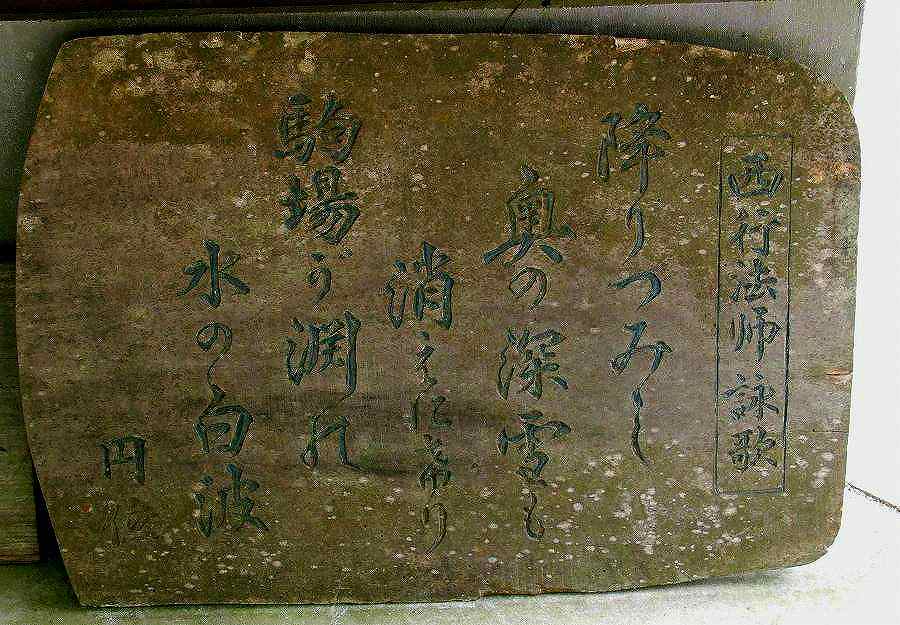 西行法師詠歌
降りつみし
奥の深雪も
消えにけり
駒場が渕の
水の白波
円位